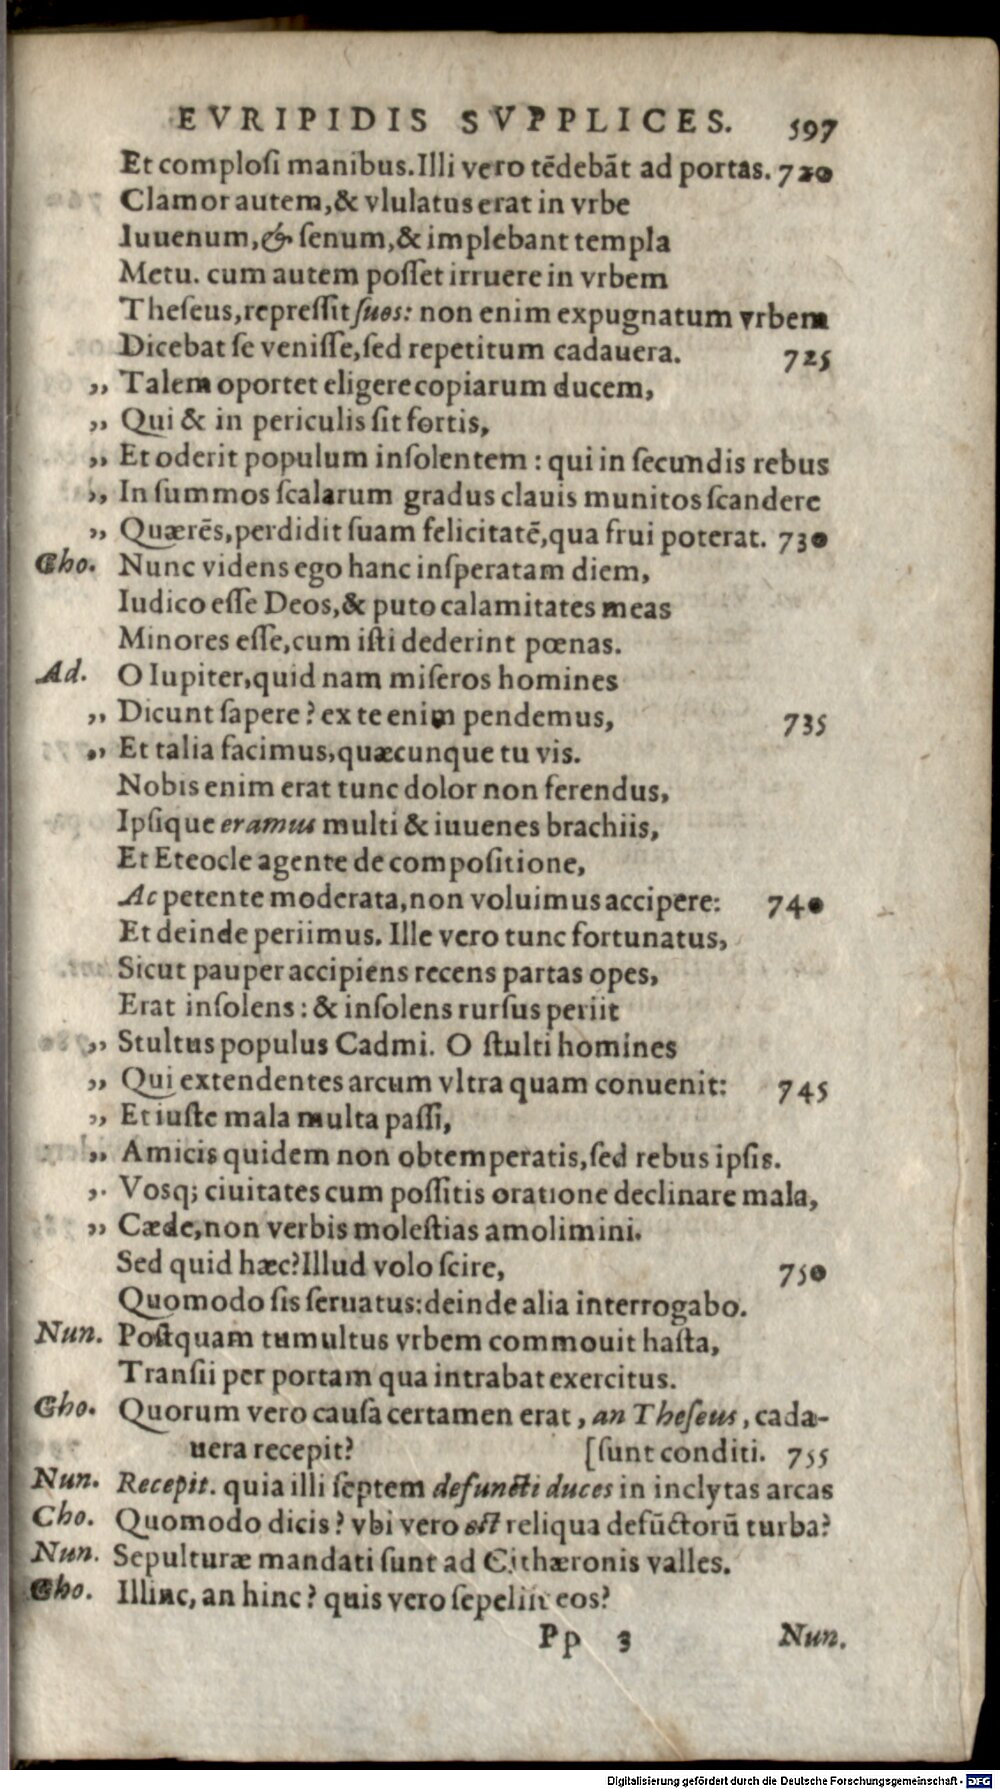 EVRIPIDIS SVPPLICES. 597
Et complosi manibus. Illi vero tēdebāt ad portas. 720
Clamor autem, & vlulatus erat in vrbe
Iuuenum, & senum, & implebant templa
Metu. cum autem posset irruere in vrbem
Theseus, repressit suos: non enim expugnatum vrbem
Dicebat se venisse, sed repetitum cadauera. 725
,, Talem oportet eligere copiarum ducem,
,, Qui & in periculis sit fortis,
,, Et oderit populum insolentem : qui in secundis rebus
,, In summos scalarum gradus clauis munitos scandere
,, Quærēs, perdidit suam felicitatē, qua frui poterat. 730
Cho. Nunc videns ego hanc insperatam diem,
Iudico esse Deos, & puto calamitates meas
Minores esse, cum isti dederint pœnas.
Ad. O Iupiter, quid nam miseros homines
,, Dicunt sapere? ex te enim pendemus, 735
,, Et talia facimus, quæcunque tu vis.
Nobis enim erat tunc dolor non ferendus,
Ipsique eramus multi & iuuenes brachiis,
Et Eteocle agente de compositione,
Ac petente moderata, non voluimus accipere: 740
Et deinde periimus. Ille vero tunc fortunatus,
Sicut pauper accipiens recens partas opes,
Erat insolens : & insolens rursus periit
,, Stultus populus Cadmi. O stulti homines
,, Qui extendentes arcum vltra quam conuenit: 745
,, Et iuste mala multa passi,
,, Amicis quidem non obtemperatis, sed rebus ipsis.
,, Vosq; ciuitates cum possitis oratione declinare mala,
,, Cæde, non verbis molestias amolimini.
Sed quid hæc? Illud volo scire, 750
Quomodo sis seruatus: deinde alia interrogabo.
Nun. Postquam tumultus vrbem commouit hasta,
Transii per portam qua intrabat exercitus.
Cho. Quorum vero causa certamen erat, an Theseus, cada-
uera recepit? [sunt conditi. 755
Nun. Recepit. quia illi septem defuncti duces in inclytas arcas
Cho. Quomodo dicis? vbi vero est reliqua defūctorū turba?
Nun. Sepulturæ mandati sunt ad Cithæronis valles.
Cho. Illinc, an hinc? quis vero sepeliit eos?
Pp 3 Nun.
Digitalisierung gefördert durch die Deutsche Forschungsgemeinschaft - DFG